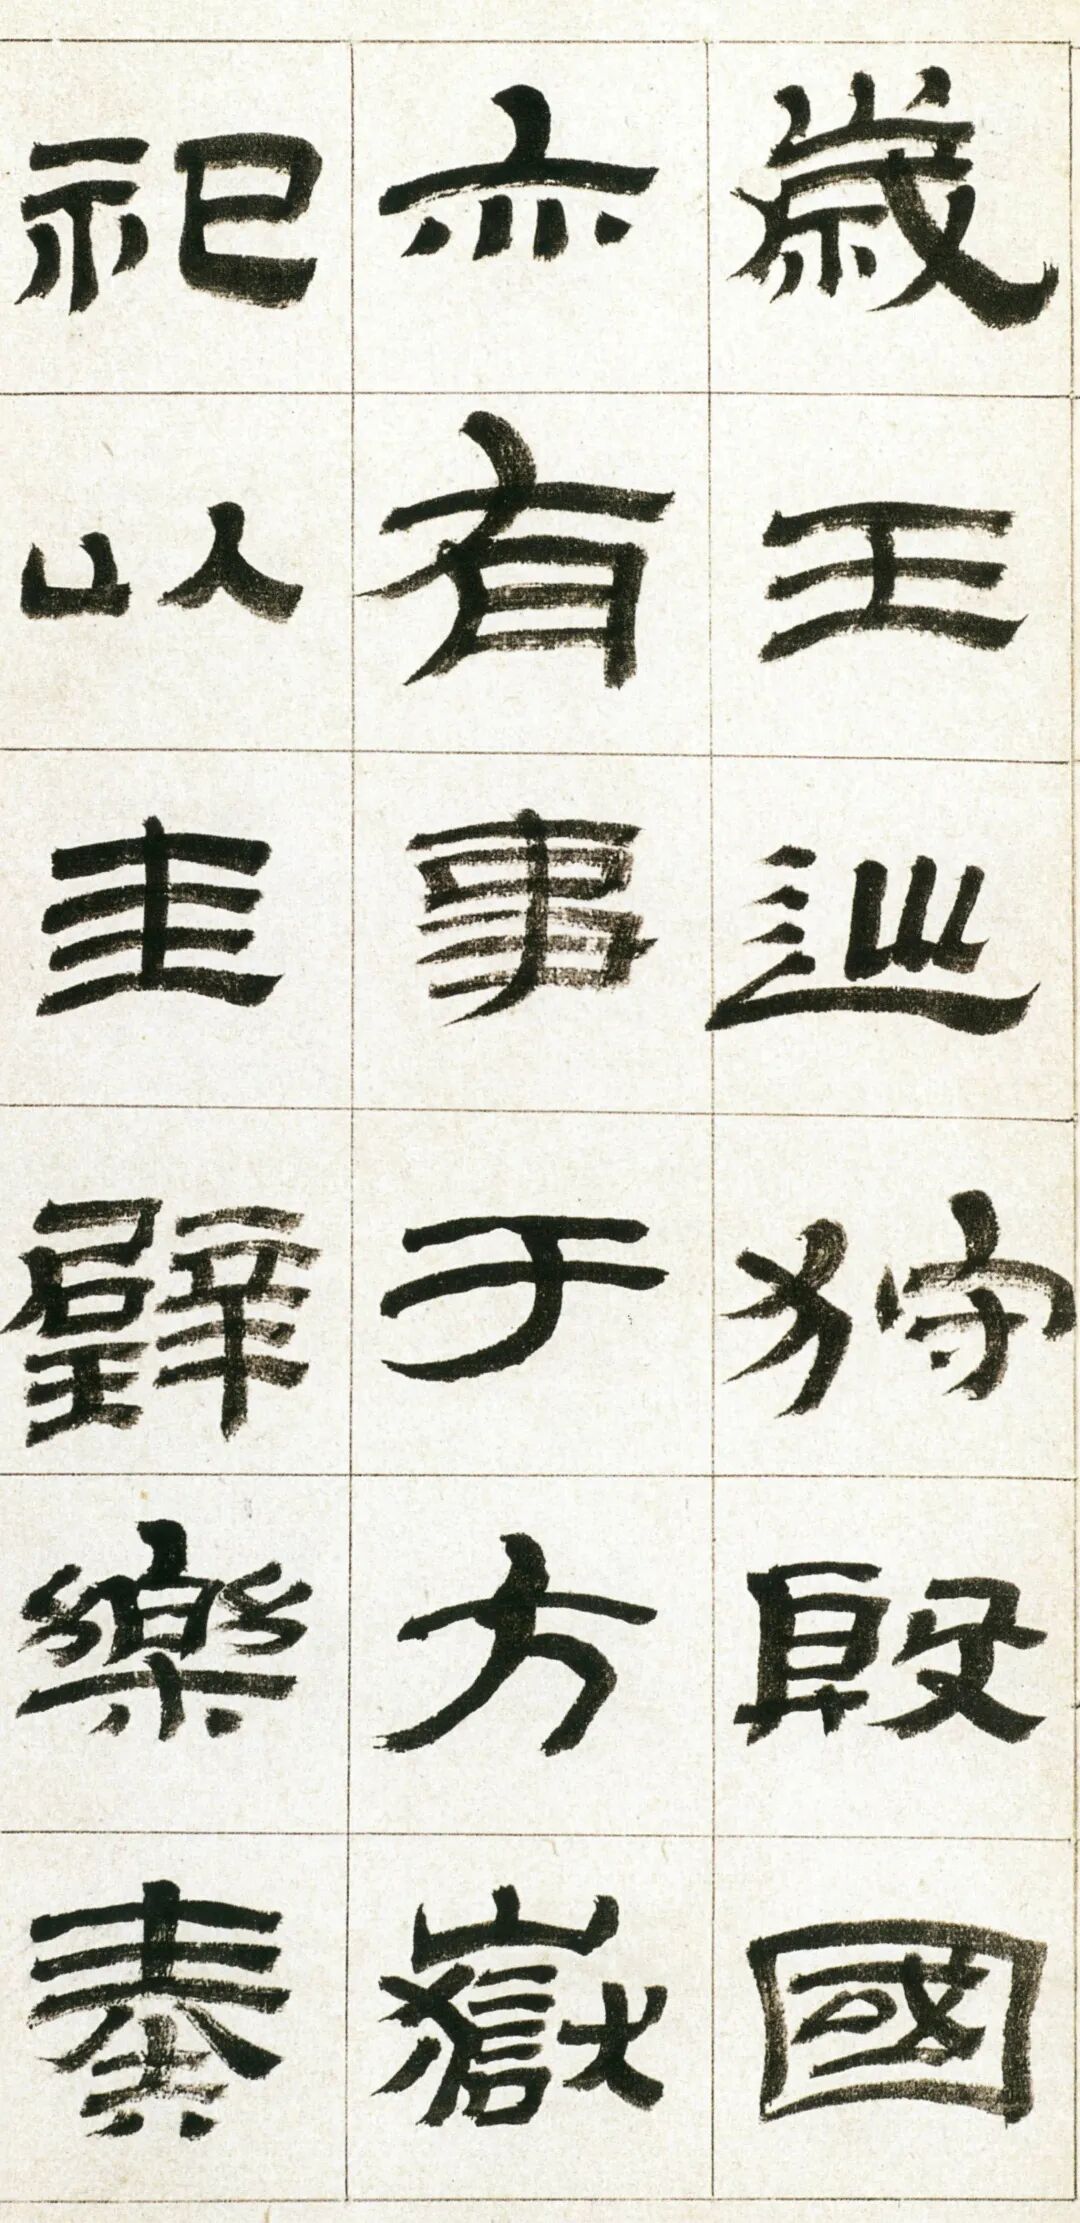 歲王巡狩殷國
亦有事于方嶽
祀以圭璧樂奏